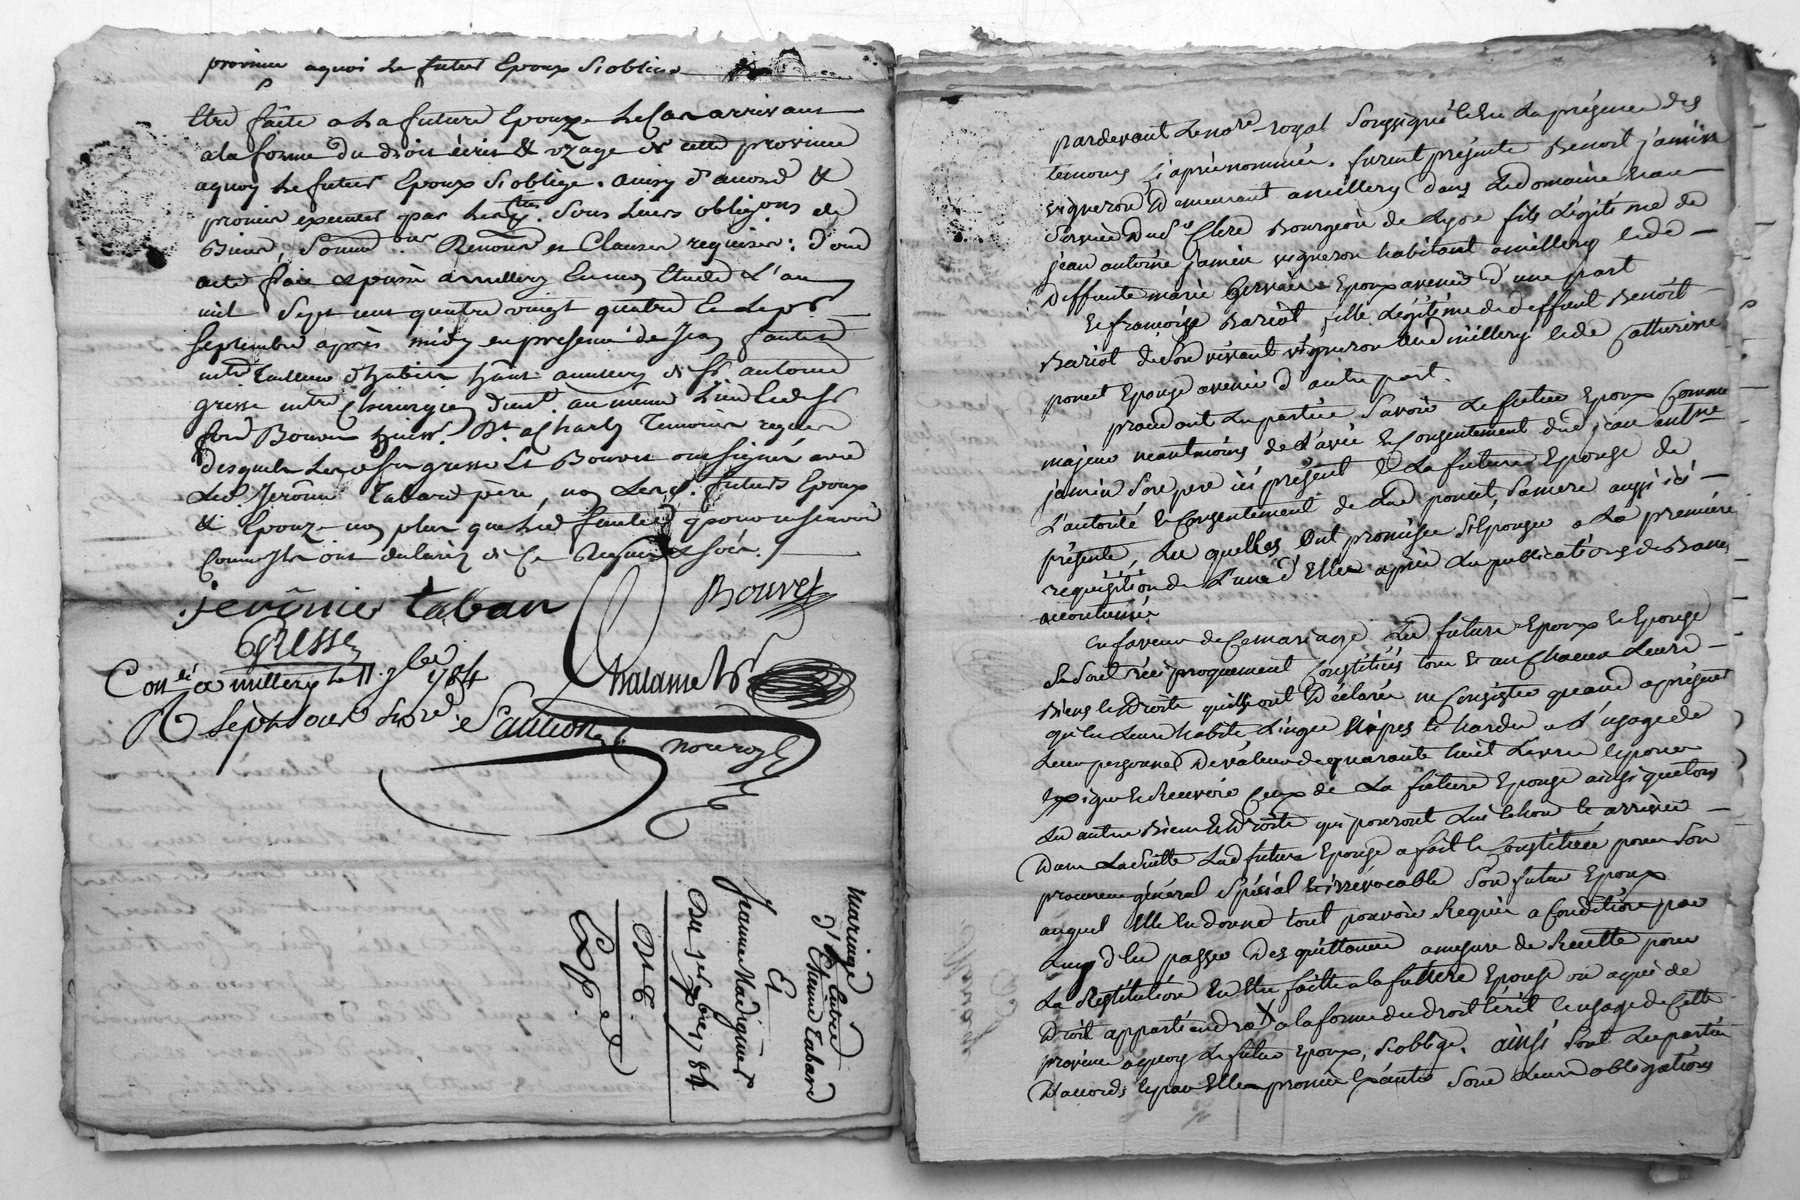 province aquoi le futur Epoux s'oblige
Etre faite a la future Epouze le Cas arrivant
a la forme du droit écrit & uzage de cette province
aquoy le futur Epoux s'oblige. ainsy d'accord &
promis executer par les partyes. sous leurs obligons de
Biens, soumons Renons et Clauses requises: dont
acte fait & passé a millery en mon Etude L'an
mil sept cent quatre vingt quatre le
septembre après midy en presence de Jean
mtre Tailleur d'habits habt a millery & sr antoine
gresse mtre Chirurgien au meme Lieu & de sr
Bouvet huissr. a Charly Temoins requis
desquels lesd. srs gresse & Bouvet ont signé avec
Led. Jerôme Tabard père, non lesd. futurs Epoux
& Epouze non plus que led. pour ne scavoir
Comme Ils ont declaré de Ce Requis & soĉr.
jerômie taban
Bouvet
Gresse
Conlé a millery le 11 7bre 1784
R sept sous
Sauzion
Chalamel
no roy
mariage Entre
d'Etienne Tabard
Et
Jeanne Madignier
Du 7bre 1784
Expé
pardevant Le nore royal soussigné & En La présence des
temoins Ci après nommés. furent présents Benoit jamin
vigneron Demeurant a millery dans Le domaine
Bourgeois de Lyon fils Légitime de
jean antoine jamin vigneron habitant a millery & de
Deffunte marie Gervais Epoux avenir d'une part
Et françoise Bariot fille Légitime de deffunt Benoit
Bariot de son vivant vigneron aud millery & de Catherine
poncet Epouse avenir d'autre part.
procedant Les parties savoir Le futur Epoux Comme
majeur neantmoins de L'avis & Consentement dud jean antne
jamin son pere ici présent & La future Epouse de
L'autorité & Consentement de Lad poncet, sa mere aussi ici
présente, Les quelles Ont promis s'Epouser a La premiere
requisition de L'une d'Elles après Les publications de Bans
accoutumés
En faveur de Ce mariage Lesd futurs Epoux & Epouse
Se Sont réciproquement Constitués tous & un Chacun Leurs
Biens & Droits qu'ils ont Déclaré ne Consister quand a présent
qu'en Leurs habits Linges Nipes & hardes a L'usage de
Leurs personnes De valeur de quarante huit Livres & pour
Exiger & Recevoir Ceux de La future Epouse ainsi que tous
Les autres Biens & Droits qui pourront Lui Echoir & arriver
Dans La suitte Lad future Epouse a fait & Constitué pour Son
procureur général spécial & irrévocable Son futur Epoux
auquel Elle En donne tout pouvoir Requis a Condition par
Luy d'En passer Des quittances a mesure de Recette pour
La Restitution En Etre faitte a la future Epouse ou a qui de
Droit appartiendra X a la forme du droit Ecrit & usage de Cette
province a quoy Le futur Epoux, s'oblige. ainsi Sont Les parties
D'accords & par Elles promis Exécuter Sous Leurs obligations